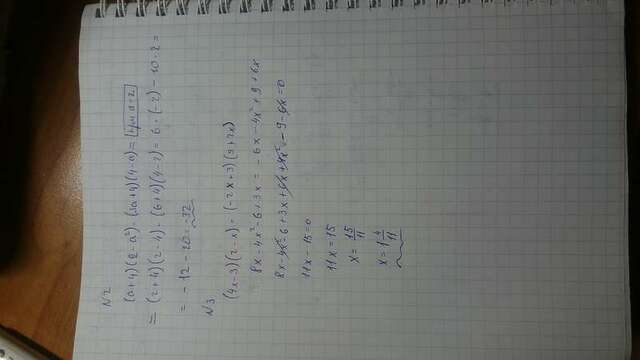 N2
(a+4)(2-a²) - (3a+4)(4-a) = при a=2
= (2+4)(2-4) - (6+4)(4-2) = 6·(-2) - 10·2 =
= -12 - 20 = -32
N3
(4x-3)(2-x) = (-2x+3)(3+2x)
8x - 4x² - 6 + 3x = -6x - 4x² + 9 + 6x
8x - 4x² - 6 + 3x + 6x + 4x² - 9 - 6x = 0
11x - 15 = 0
11x = 15
x = 15/11
x = 1 4/11